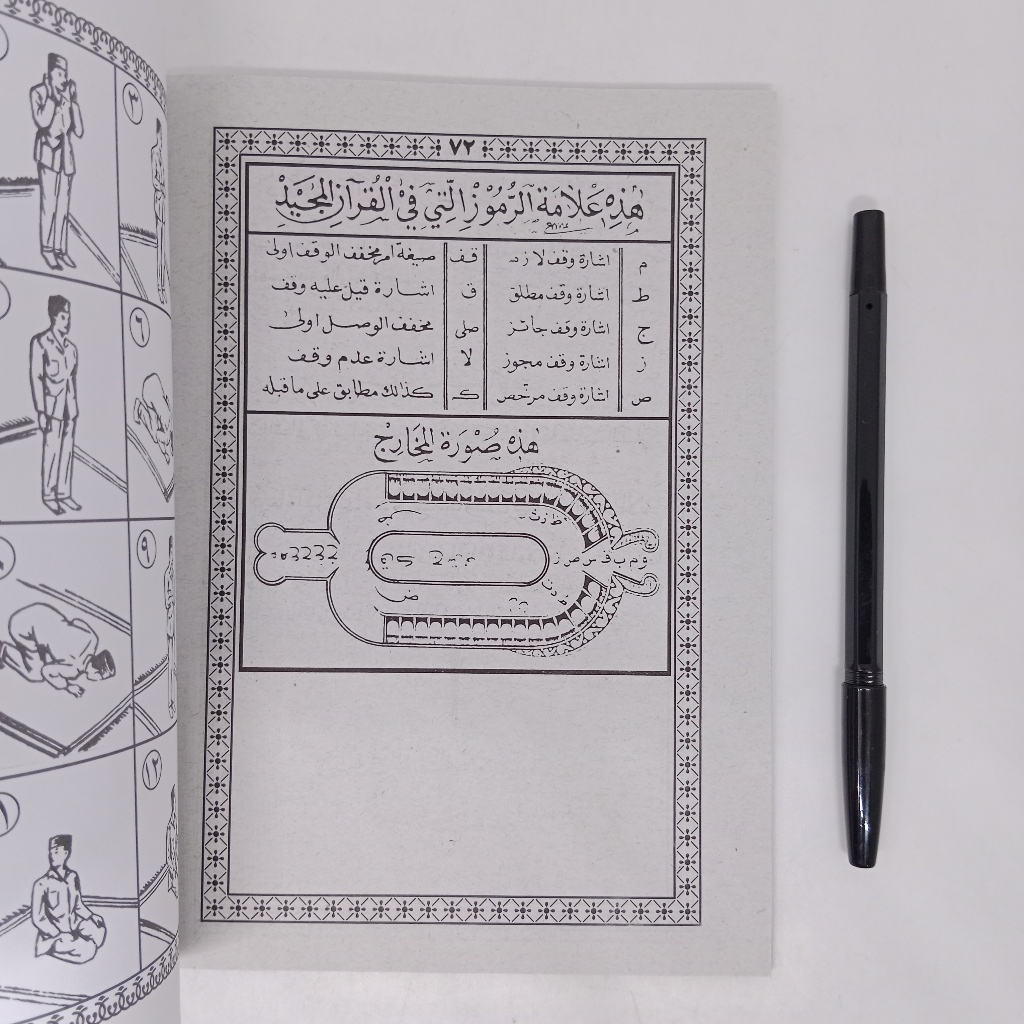 ٧٢
هٰذِهِ عْلَامَةُ الرُّمُوْزِ الَّتِيْ فِي الْقُرْآنِ الْمَجِيْدِ
م اشارة وقف لازم قف صيغة امر مخفف الوقف اولى
ط اشارة وقف مطلق ق اشارة قيل عليه وقف
ج اشارة وقف جائز صلى مخفف الوصل اولى
ز اشارة وقف مجوز لا اشارة عدم وقف
ص اشارة وقف مرخص ك كذلك مطابق على ما قبله
هٰذِهِ صُوْرَةُ الْمَخَارِجِ
ط د ت
و م ب ف س ص ز
ض
٣
٦
٩
١٢